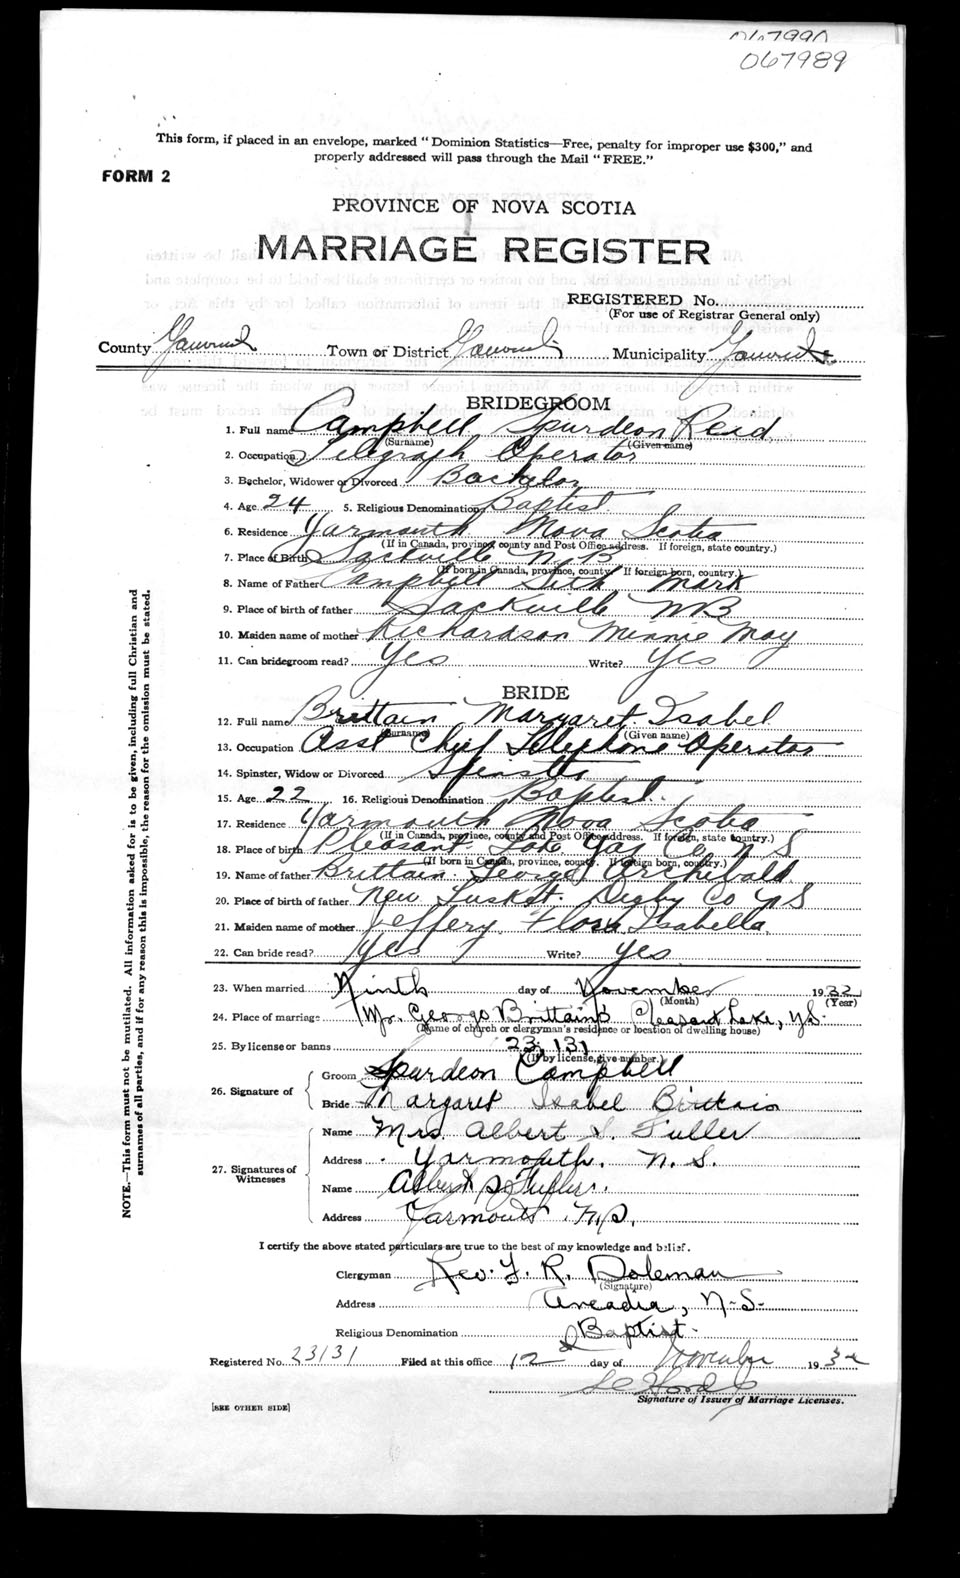 067990
067989
This form, if placed in an envelope, marked "Dominion Statistics—Free, penalty for improper use $300," and
properly addressed will pass through the Mail "FREE."
FORM 2
PROVINCE OF NOVA SCOTIA
MARRIAGE REGISTER
REGISTERED No.
(For use of Registrar General only)
County Yarmouth Town or District Yarmouth Municipality Yarmouth
BRIDEGROOM
1. Full name Campbell Spurdeon Reid
(Surname) (Given name)
2. Occupation Telegraph Operator
3. Bachelor, Widower or Divorced Bachelor
4. Age 24 5. Religious Denomination Baptist
6. Residence Yarmouth Nova Scotia
(If in Canada, province, county and Post Office address. If foreign, state country.)
7. Place of Birth Sackville N B
(If born in Canada, province, county. If foreign born, country.)
8. Name of Father Campbell Seth Mark
9. Place of birth of father Sackville NB
10. Maiden name of mother Richardson Minnie May
11. Can bridegroom read? Yes Write? Yes
BRIDE
12. Full name Brittain Margaret Isabel
(Surname) (Given name)
13. Occupation Asst Chief Telephone Operator
14. Spinster, Widow or Divorced Spinster
15. Age 22 16. Religious Denomination Baptist
17. Residence Yarmouth Nova Scotia
(If in Canada, province, county and Post Office address. If foreign, state country.)
18. Place of birth Pleasant Lake Yar Co N S
(If born in Canada, province, county. If foreign born, country.)
19. Name of father Brittain George Archibald
20. Place of birth of father New Tusket Digby Co N S
21. Maiden name of mother Jeffery Flora Isabella
22. Can bride read? Yes Write? Yes
23. When married Ninth day of November 1932
(Month) (Year)
24. Place of marriage Mr. George Brittain's Pleasant Lake, N.S.
(Name of church or clergyman's residence or location of dwelling house)
25. By license or banns 23,131
(If by license, give number.)
26. Signature of
Groom Spurdeon Campbell
Bride Margaret Isabel Brittain
27. Signatures of Witnesses
Name Mrs. Albert S. Fuller
Address Yarmouth. N. S.
Name Albert S Fuller.
Address Yarmouth N.S.
I certify the above stated particulars are true to the best of my knowledge and belief.
Clergyman Rev. F. R. Doleman
(Signature)
Address Arcadia, N-S-
Religious Denomination Baptist
Registered No. 23131 Filed at this office 12 day of November 1932
Signature of Issuer of Marriage Licenses.
[SEE OTHER SIDE]
NOTE.—This form must not be mutilated. All information asked for is to be given, including full Christian and
surnames of all parties, and if for any reason this is impossible, the reason for the omission must be stated.